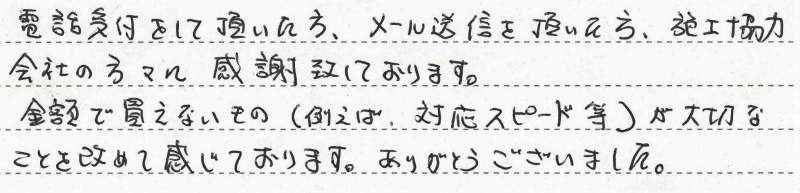 電話受付をして頂いた方、メール送信を頂いた方、施工協力
会社の方々に感謝致しております。
金額で買えないもの（例えば、対応スピード等）が大切な
ことを改めて感じております。ありがとうございました。